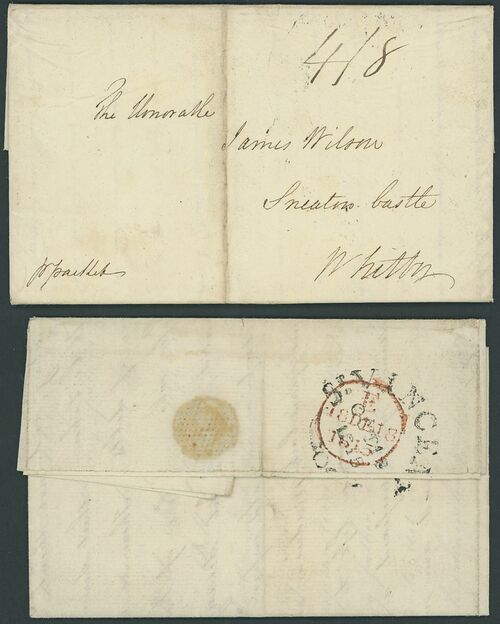 4/8
The Honorable
James Wilson
Sneaton Castle
Whitby
p packet
ST VINCENT
E
18 DE 18
1815